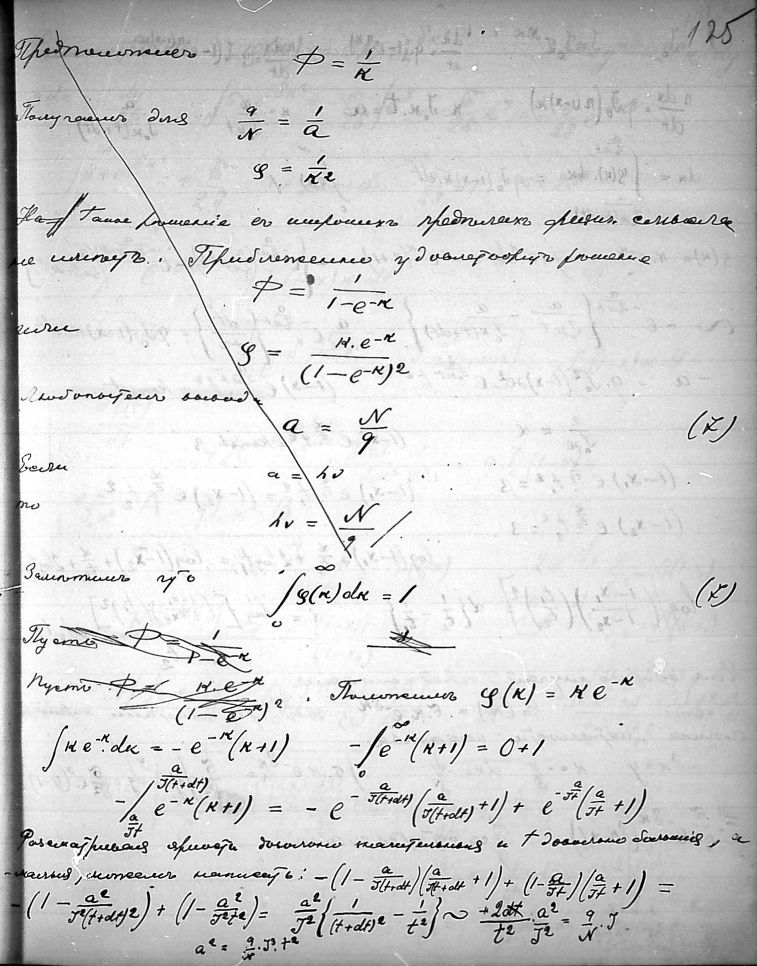 125
Предположимъ Φ = 1/κ
Получаемъ для q/N = 1/a
φ = 1/κ²
На такое рѣшеніе въ широкихъ предѣлахъ физич. смысла
не имѣетъ. Приближенно удовлетворитъ рѣшеніе
Φ = 1/(1-e^{-κ})
или
φ = κ.e^{-κ}/(1-e^{-κ})²
Любопытенъ выводъ
a = N/q (7)
Если a = hν
то hν = N/q
Замѣтимъ что ∫₀^∞ φ(κ)dκ = 1 (7)
Пусть Φ = 1/(1-e^{-κ})
Пусть Φ = κ.e^{-κ}/(1-e^{-κ})². Положимъ φ(κ) = κe^{-κ}
∫κe^{-κ}dκ = -e^{-κ}(κ+1) -∫₀^∞ e^{-κ}(κ+1) = 0+1
-∫_{a/Jt}^{a/J(t+dt)} e^{-κ}(κ+1) = -e^{-a/J(t+dt)}(a/J(t+dt) +1) + e^{-a/Jt}(a/Jt +1)
Разсматривая яркость довольно значительныя и t довольно большія, a
малыя, можемъ написать: -(1 - a/J(t+dt))(a/J(t+dt) +1) + (1-a/Jt)(a/Jt +1) =
-(1 - a²/J²(t+dt)²) + (1 - a²/J²t²) = a²/J²{1/(t+dt)² - 1/t²} ∼ +2dt/t² . a²/J² = q/N . J
a² = q/N . J³. t²